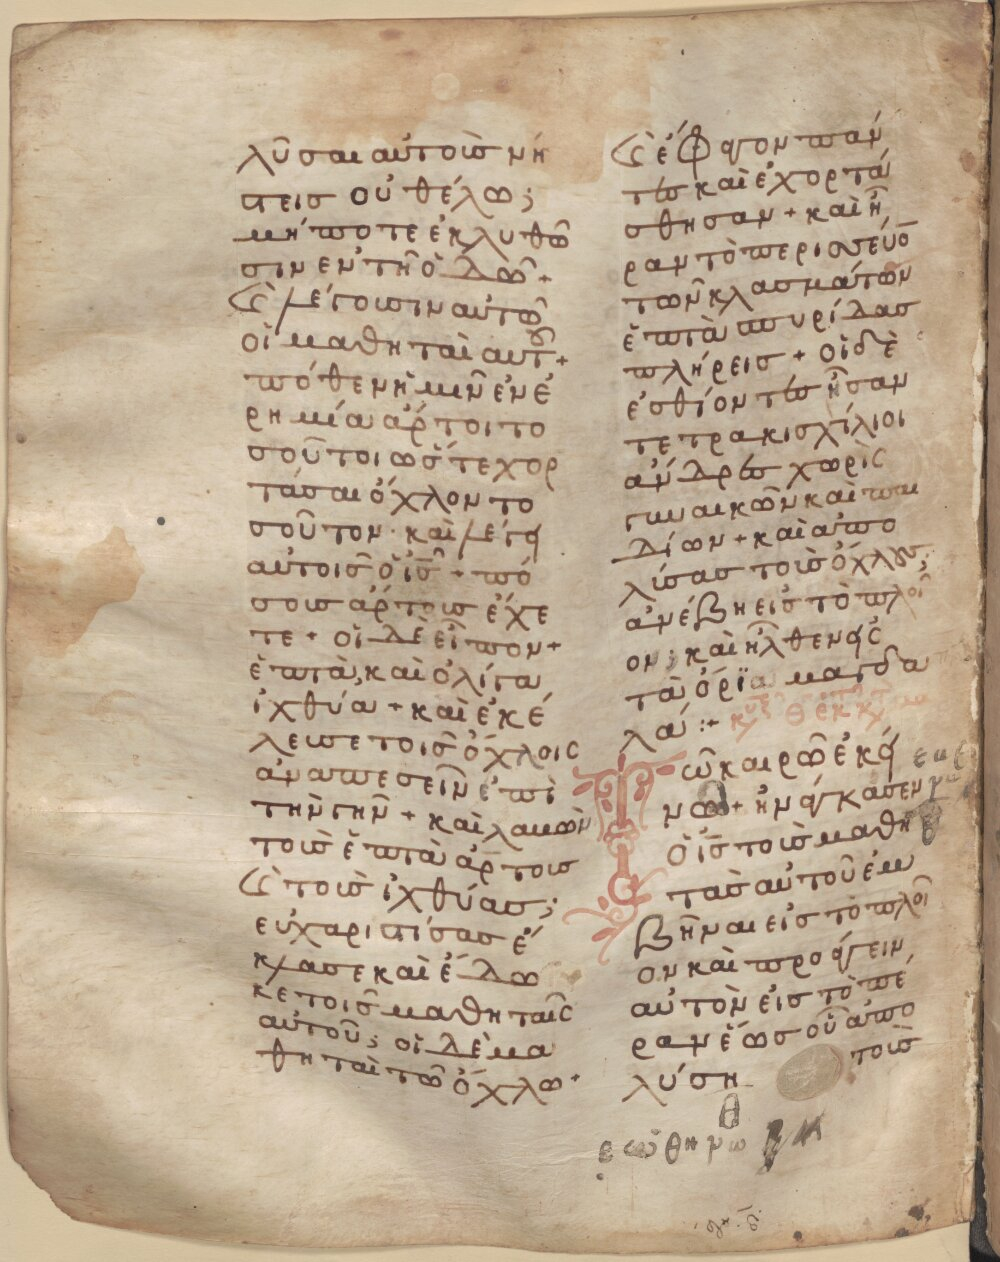 λῦσαι αὐτοὺς νή
στεις οὐ θέλω;
μήποτε ἐκλυθῶ
σιν ἐν τῆ ὁδῶ +
Καὶ λέγουσιν αὐτῶ
οἱ μαθηταὶ αυτοῦ +
πόθεν ἡμῖν ἐν ἐ
ρημία ἄρτοι το
σοῦτοι ὥστε χορ
τάσαι ὄχλον το
σοῦτον · καὶ λέγει
αὐτοῖς ὁ ἰς + πό
σους ἄρτους ἔχε
τε + οἱ δὲ εἶπον +
ἑπτὰ, καὶ ὀλίγα
ἰχθύα + καὶ ἐκέ
λευσε τοῖς ὄχλοις
ἀναπεσεῖν ἐπὶ
τὴν γῆν + καὶ λαβὼν
τοὺς ἑπτὰ ἄρτους
Καὶ τοὺς ἰχθύας;
εὐχαριστίσας ἔ
κλασε καὶ ἔδω
κε τοῖς μαθηταῖς
αὐτοῦ; οἱ δὲ μα
θηταὶ τῶ ὄχλω +
Καὶ ἔφαγον πάν
τες καὶ ἐχορτά
σθησαν + καὶ ἦ
ραν τὸ περισσεῦον
τῶν κλασμάτων
ἑπτὰ σπυρίδας
πλήρεις + οἱ δὲ
ἐσθίοντες ἦσαν
τετρακισχίλιοι
ἄνδρες χωρὶς
γυναικῶν καὶ παι
δίων + καὶ ἀπο
λύσας τοὺς ὄχλους;
ἀνέβη εἰς τὸ πλοῖ
ον; καὶ ἦλθεν εἰς
τὰ ὅρια μαγδα
λά :+
Τῶ καιρῶ ἐκεί
νω + ἠνάγκασεν
ὁ ἰς τοὺς μαθη
τὰς αὐτοῦ ἐμ
βῆναι εἰς τὸ πλοῖ
ον καὶ προάγειν
αὐτὸν εἰς τὸ πέ
ραν ἕως οὗ ἀπο
λύση τοὺς